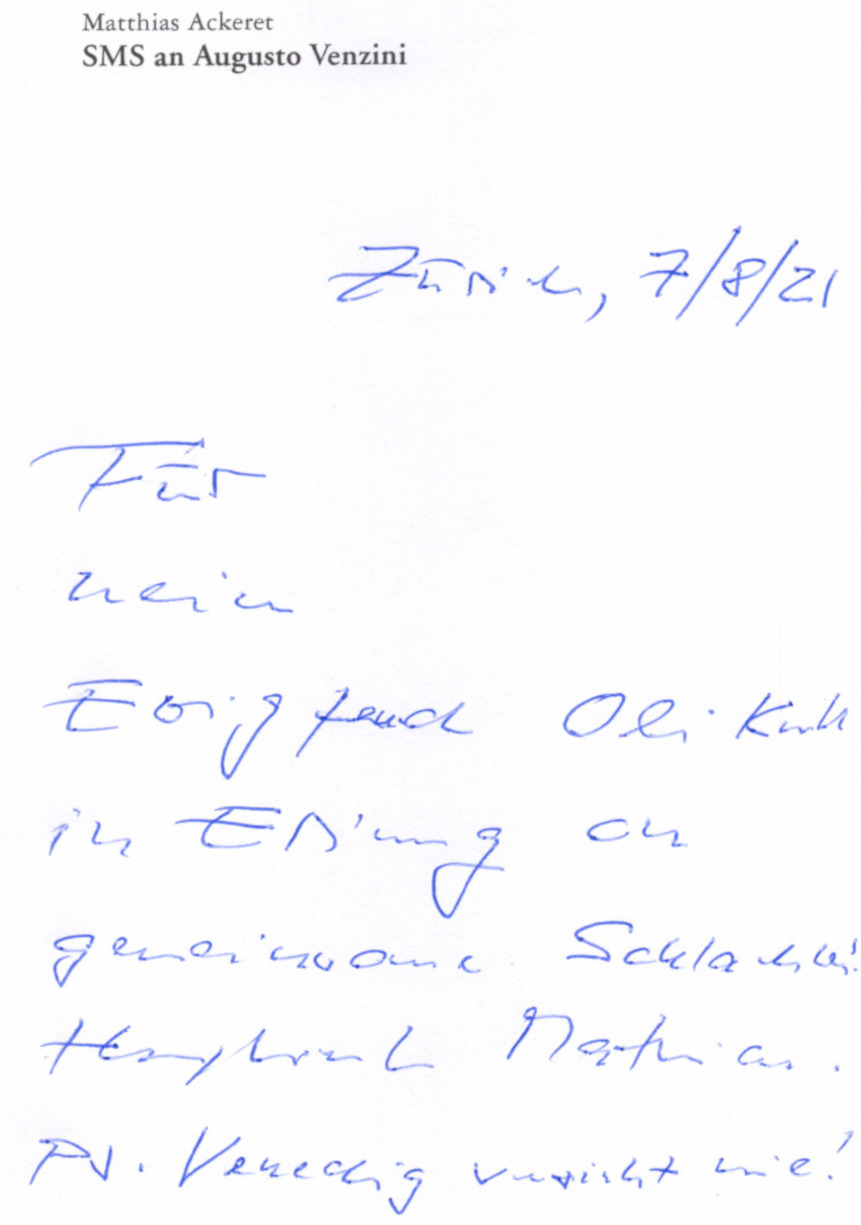 Matthias Ackeret
SMS an Augusto Venzini
Zürich, 7/8/21
Für
mein
Ewigfreund Oli
in Erinnerung an
gemeinsame Schlachten!
Herzlich Matthias.
PS. Venedig versinkt nie!